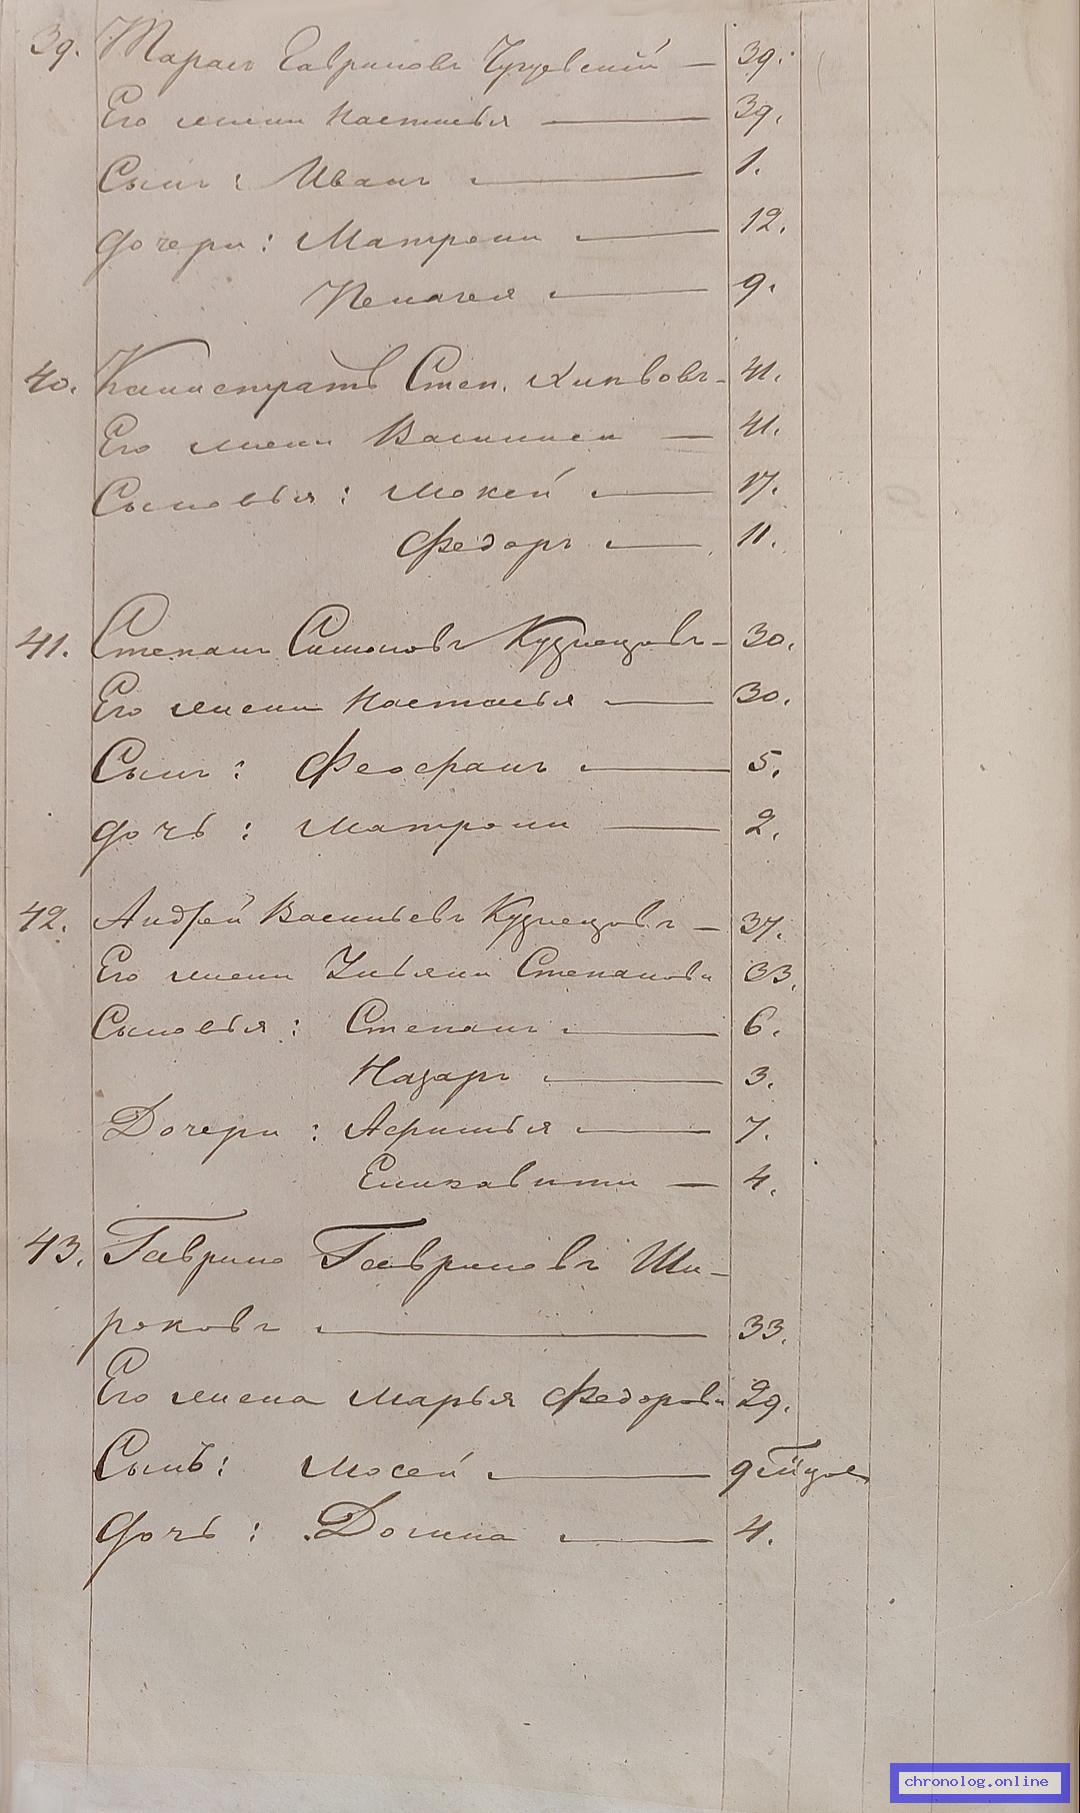 39. Тарасъ Гавриловъ Чугуевский — 39.
Его жена Настасья — 39.
Сынъ: Иванъ — 1.
Дочери: Матрона — 12.
Пелагея — 9.
40. Калистратъ Степ. — 41.
Его жена Василиса — 41.
Сыновья: Мокей — 17.
Федоръ — 11.
41. Степанъ Симоновъ Кузнецовъ — 30.
Его жена Настасья — 30.
Сынъ: Феофанъ — 5.
Дочь: Матрона — 2.
42. Андрей Васильевъ Кузнецовъ — 37.
Его жена Ульяна Степанова 33.
Сыновья: Степанъ — 6.
Назаръ — 3.
Дочери: Афимья — 7.
Елизавета — 4.
43. Гаврило Гавриловъ Ши-
роковъ — 33.
Его жена Марья Федорова 29.
Сынъ: Мосей — 9
Дочь: Домна — 4.
chronolog.online